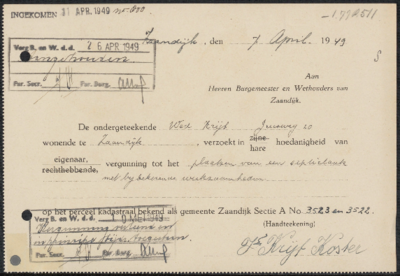 INGEKOMEN 11 APR. 1949 No 600
Verg B. en W. d.d. 26 APR. 1949
Par. Secr. Par. Burg.
Zaandijk, den 7 April 1949
Aan
Heeren Burgemeester en Wethouders van
Zaandijk.
De ondergeteekende Wed. Krijt
wonende te Zaandijk, verzoekt in zijne hare hoedanigheid van
eigenaar,
rechthebbende, vergunning tot het plaatsen van een septictank
met bijbehorende werkzaamheden
op het perceel kadastraal bekend als gemeente Zaandijk Sectie A No. 3523 en 3522.
(Handteekening)
Verg B. en W. d.d.
Vergunning
Par. Secr. Par. Burg.
Krijt Koster